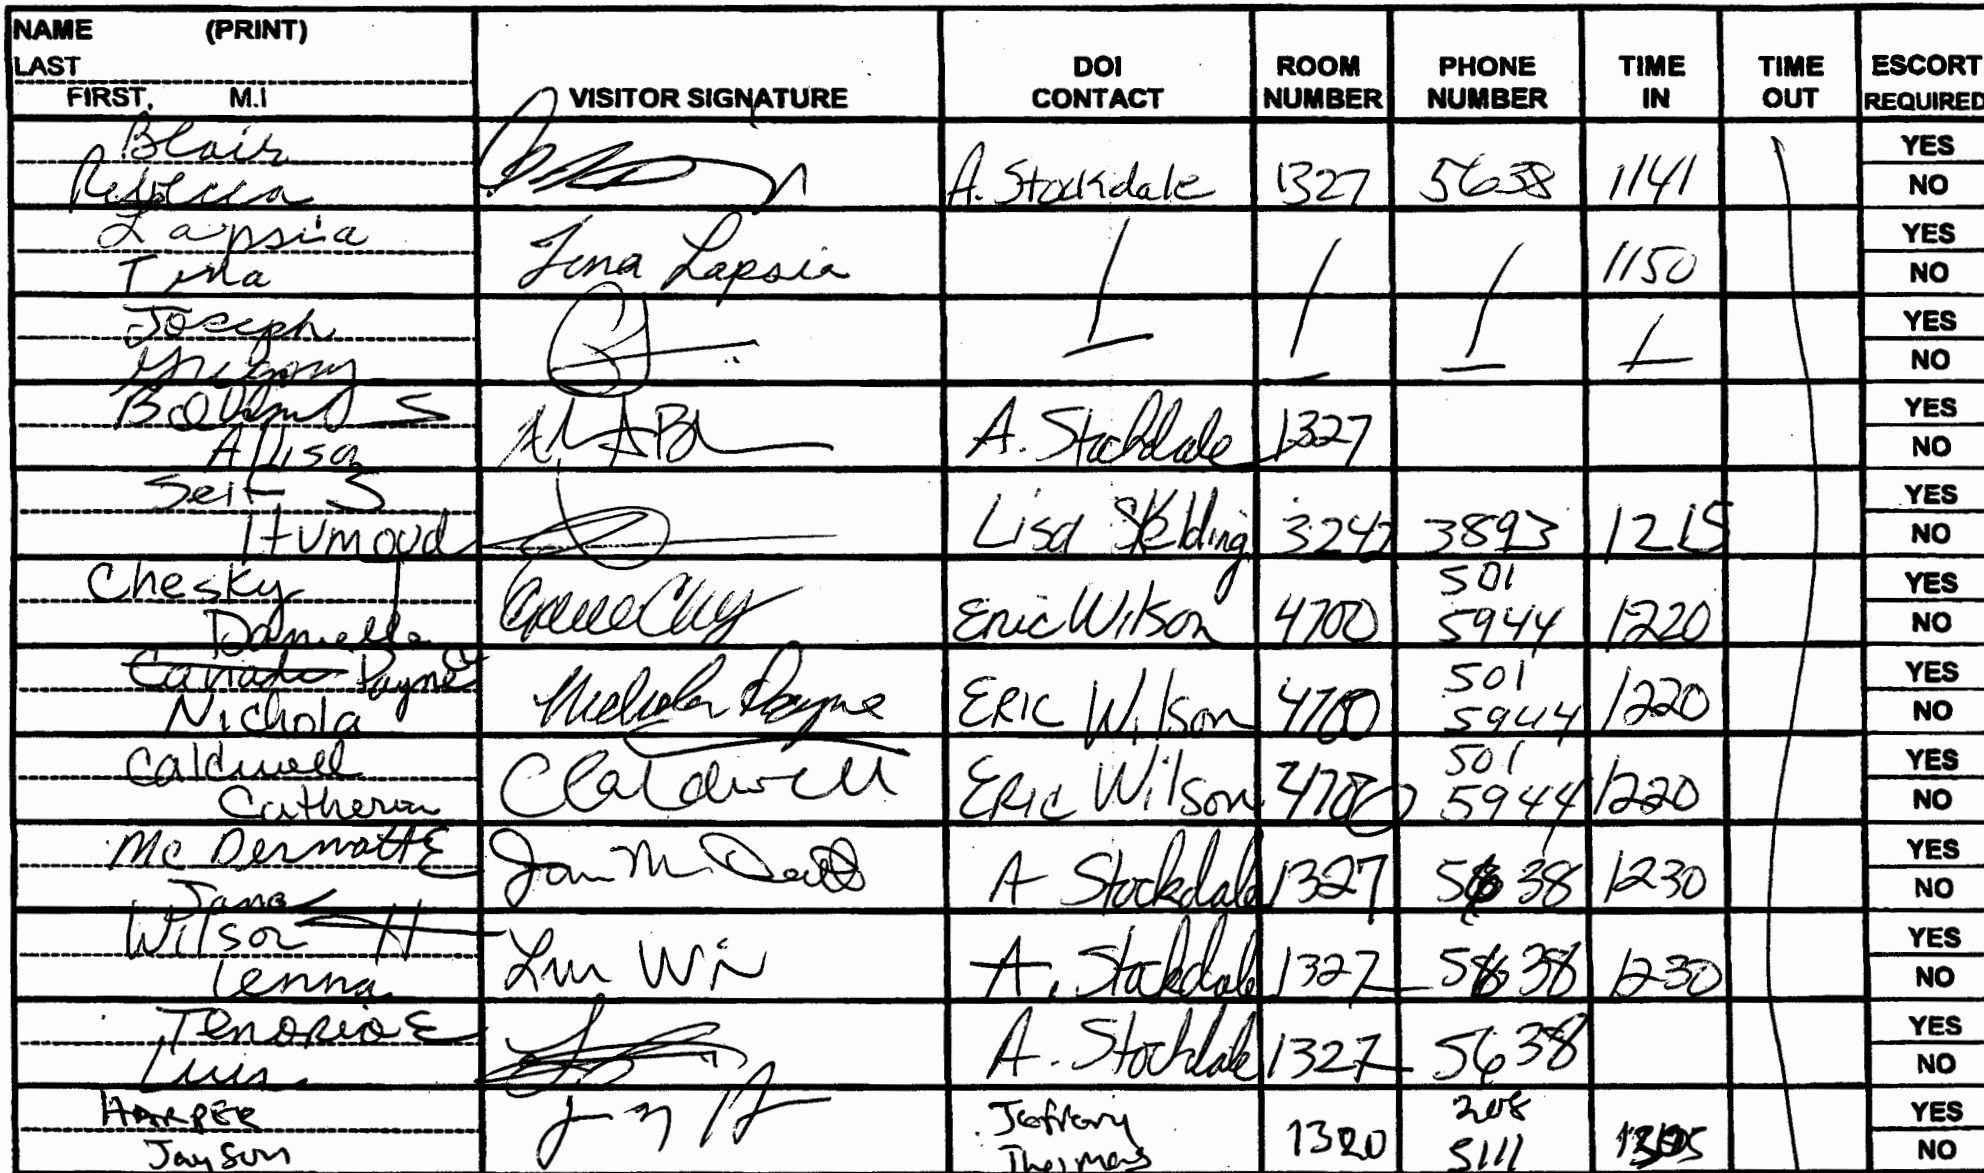 NAME (PRINT)
LAST
FIRST, M.I
VISITOR SIGNATURE
DOI CONTACT
ROOM NUMBER
PHONE NUMBER
TIME IN
TIME OUT
ESCORT REQUIRED
Blair
Rebecca
A. Stockdale 1327 5638 1141
YES
NO
Lapsia
Tina
Tina Lapsia
1150
YES
NO
Joseph
Gregory
YES
NO
S
Allison
A. Stockdale 1327
YES
NO
Seit S
Humoud
Lisa Skelding 3242 3893 1215
YES
NO
Chesky
Danielle
Eric Wilson 4700 501 5944 1220
YES
NO
Payne
Nichola
Nichola Payne
ERIC Wilson 4700 501 5944 1220
YES
NO
Caldwell
Catherine
CCaldwell
ERIC Wilson 4700 501 5944 1220
YES
NO
McDermott E
Jane
A Stockdale 1327 5638 1230
YES
NO
Wilson H
Lenna
A. Stockdale 1327 5638 1230
YES
NO
Tenorio E
Luis
A. Stockdale 1327 5638
YES
NO
HARPER
Jayson
Jeffrery Thomas 1320 208 5111 1305
YES
NO